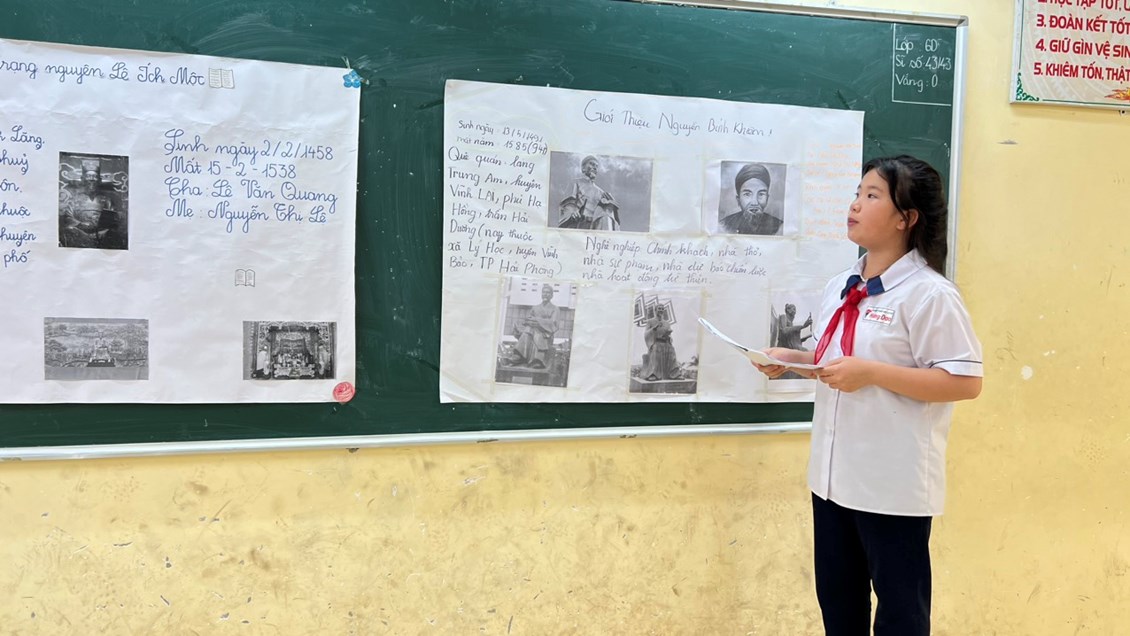 rạng nguyên Lê Ích Mộc
Lãng,
huỷ
ôn,
huộc
huyện
phố
Sinh ngày 2/2/1458
Mất 15-2-1538
Cha: Lê Văn Quang
Mẹ: Nguyễn Thị Lê
Giới Thiệu Nguyễn Bỉnh Khiêm!
Sinh ngày:
mất năm: 1585 (94t)
Quê quán: làng
Trung Am, huyện
Vĩnh LAI, phủ Hạ
Hồng, trấn Hải
Dương (nay thuộc
xã Lý Học, huyện Vĩnh
Bảo, TP Hải Phòng)
Nghề nghiệp Chính khách, nhà thơ,
nhà sư phạm, nhà dự báo chiến lược
nhà hoạt động từ thiện.
Lớp 6D
Sĩ số: 43/43
Vắng: 0
2. HỌC TẬP TỐT,
3. ĐOÀN KẾT TỐT
4. GIỮ GÌN VỆ SIN
5. KHIÊM TỐN, THẬT